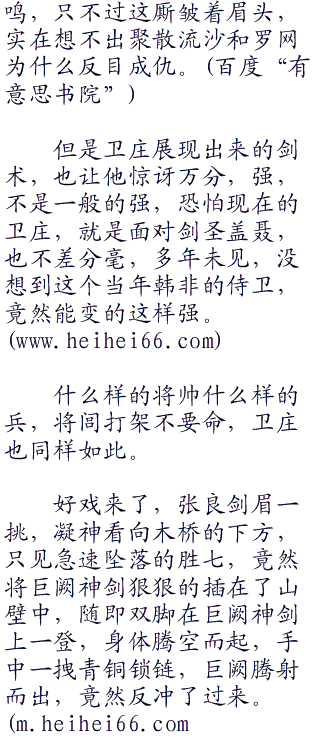 鸣，只不过这厮皱着眉头，
实在想不出聚散流沙和罗网
为什么反目成仇。(百度“有
意思书院”)
但是卫庄展现出来的剑
术，也让他惊讶万分，强，
不是一般的强，恐怕现在的
卫庄，就是面对剑圣盖聂，
也不差分毫，多年未见，没
想到这个当年韩非的侍卫，
竟然能变的这样强。
(www.heihei66.com)
什么样的将帅什么样的
兵，将闾打架不要命，卫庄
也同样如此。
好戏来了，张良剑眉一
挑，凝神看向木桥的下方，
只见急速坠落的胜七，竟然
将巨阙神剑狠狠的插在了山
壁中，随即双脚在巨阙神剑
上一登，身体腾空而起，手
中一拽青铜锁链，巨阙腾射
而出，竟然反冲了过来。
(m.heihei66.com